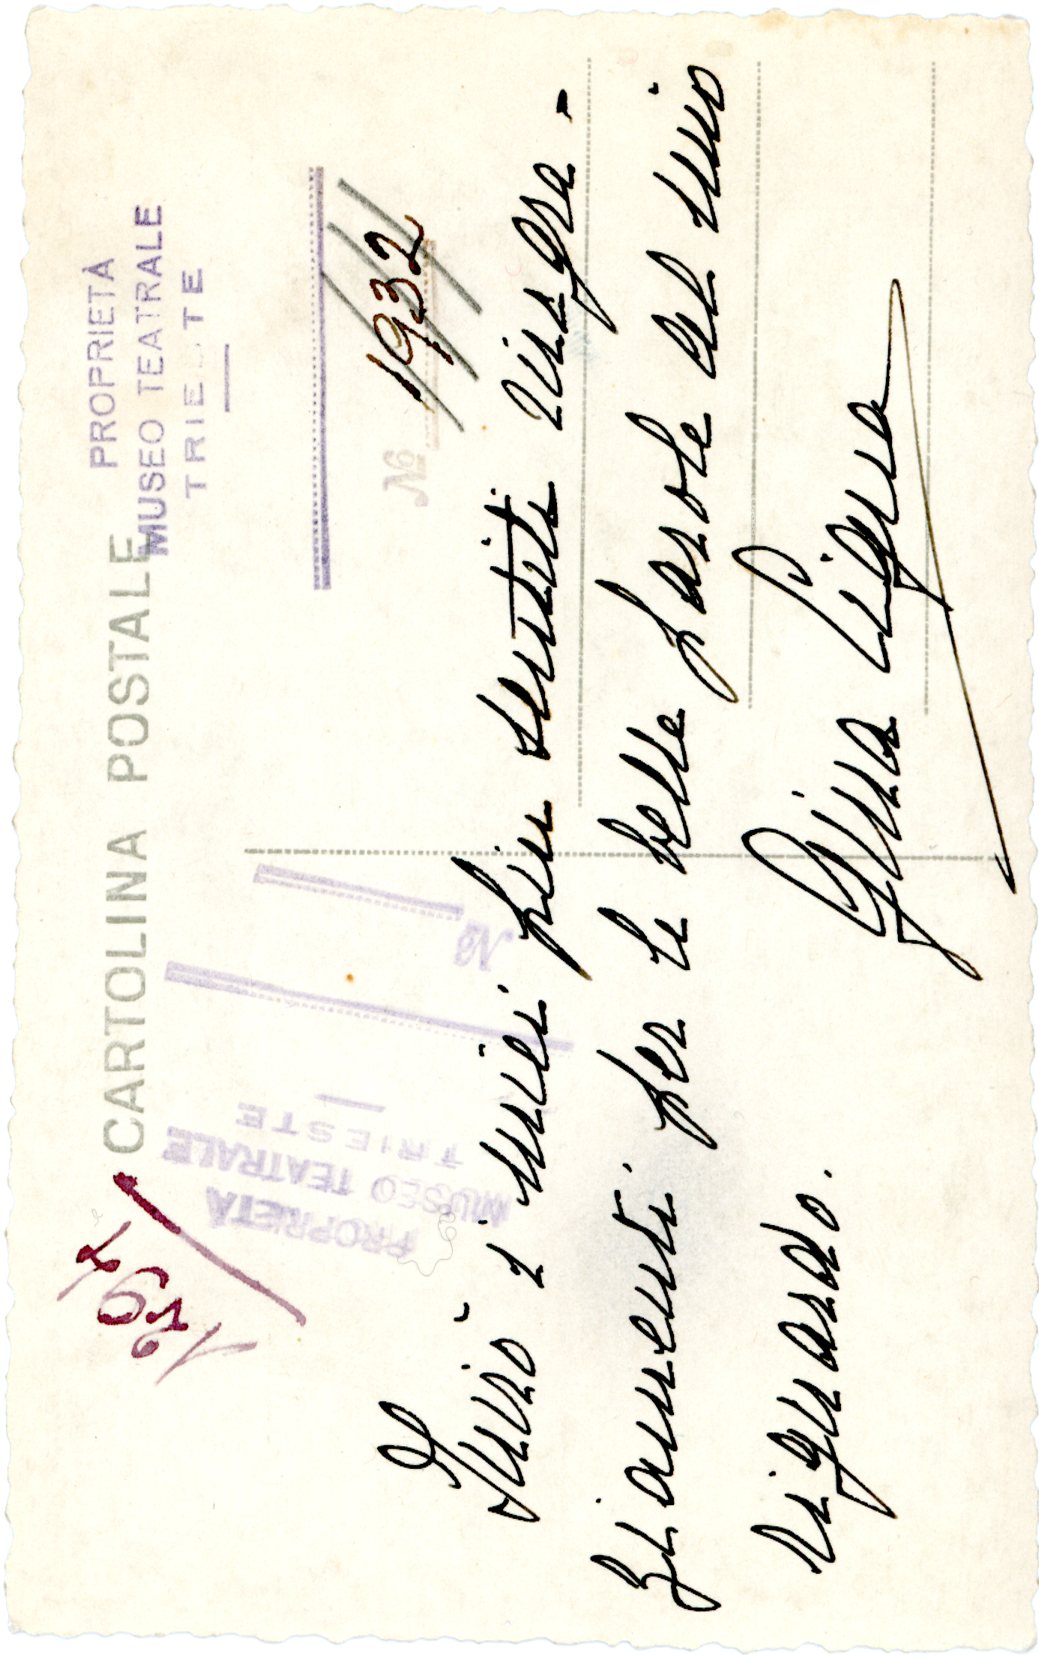 CARTOLINA POSTALE
PROPRIETÀ
MUSEO TEATRALE
TRIESTE
No
1932
PROPRIETÀ
MUSEO TEATRALE
TRIESTE
No
Invio i miei più sentiti ringra-
ziamenti per le belle parole al mio
riguardo.
Gina Cigna